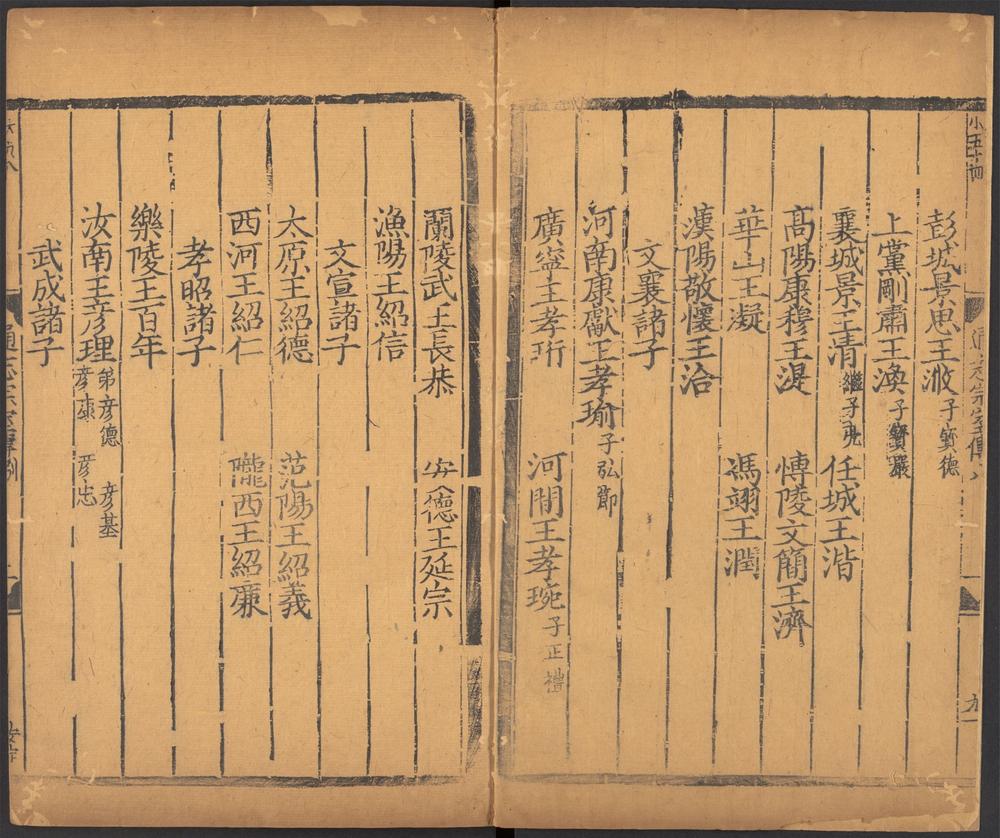 小五十四
彭城景思王浟 子寶德
上黨剛肅王渙 子寶嚴
襄城景王淯 繼子亮 任城王湝
高陽康穆王湜 博陵文簡王濟
華山王凝 馮翊王潤
漢陽敬懷王洽
文襄諸子
河南康獻王孝瑜 子弘節
廣寧王孝珩 河間王孝琬 子正禮
蘭陵武王長恭 安德王延宗
漁陽王紹信
文宣諸子
太原王紹德 范陽王紹義
西河王紹仁 隴西王紹廉
孝昭諸子
樂陵王百年
汝南王彥理 弟彥德 彥基 彥康 彥忠
武成諸子